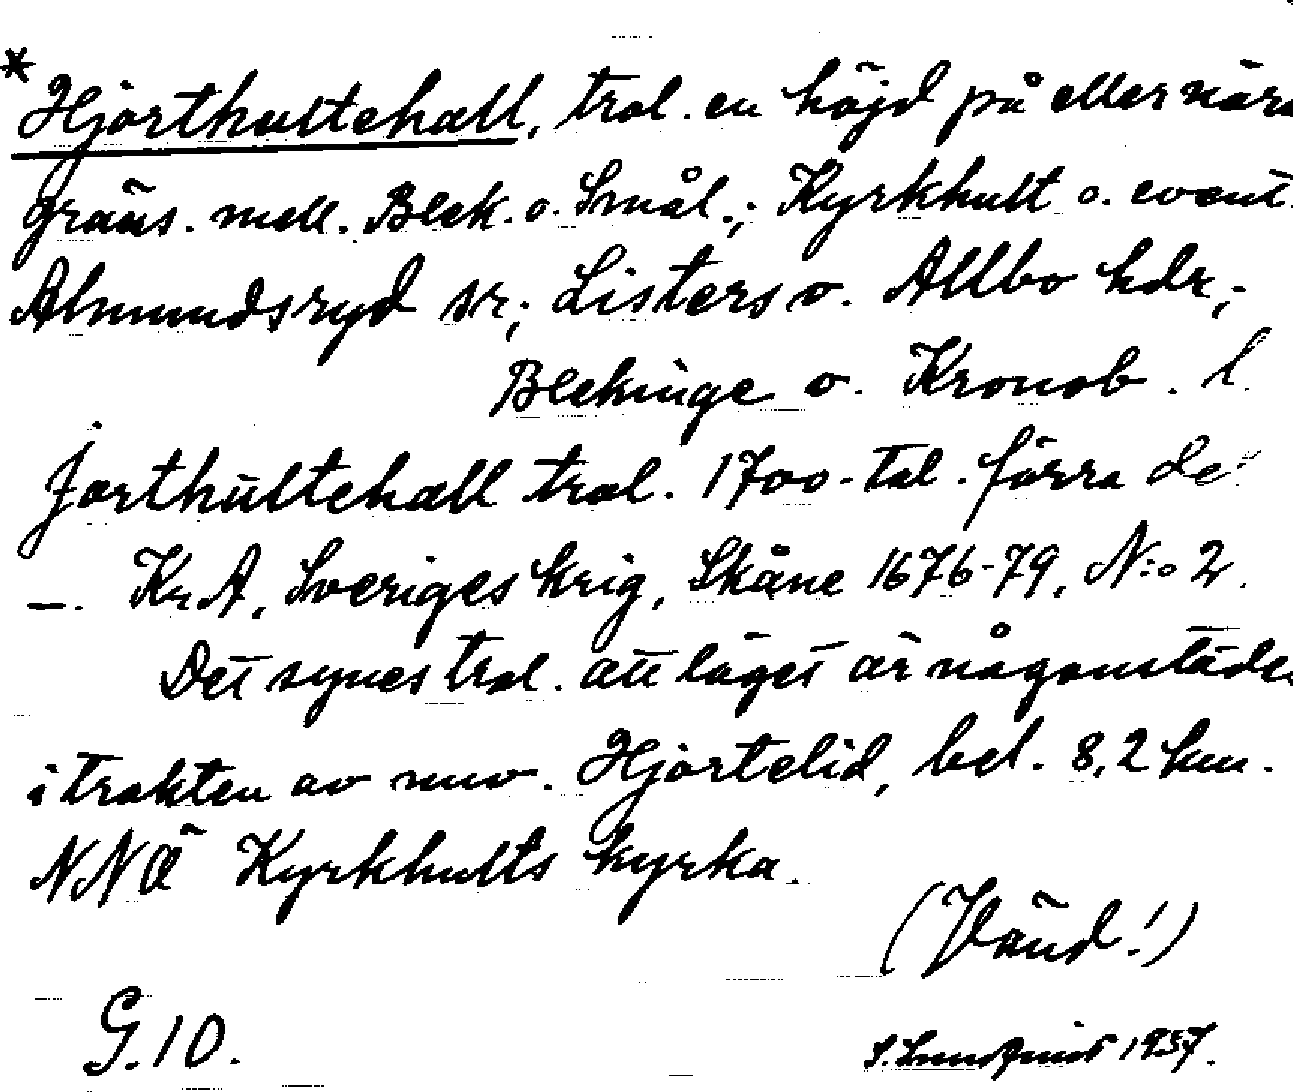 *Hjorthultehall, trol. en höjd på eller nära
gräns. mell. Blek. o. Smål.; Kyrkhult o. event.
Almundsryd sr; Listers o. Allbo hdr;
Blekinge o. Kronob. l.
Jorthultehall trol. 1700-tal. förra del.
—. Kr A, Sveriges krig, Skåne 1676-79, N:o 2.
Det synes trol. att läget är någonstädes
i trakten av nuv. Hjortelid, bel. 8,2 km.
NNÖ Kyrkhults kyrka.
(Vänd!)
G. 10.
1957.